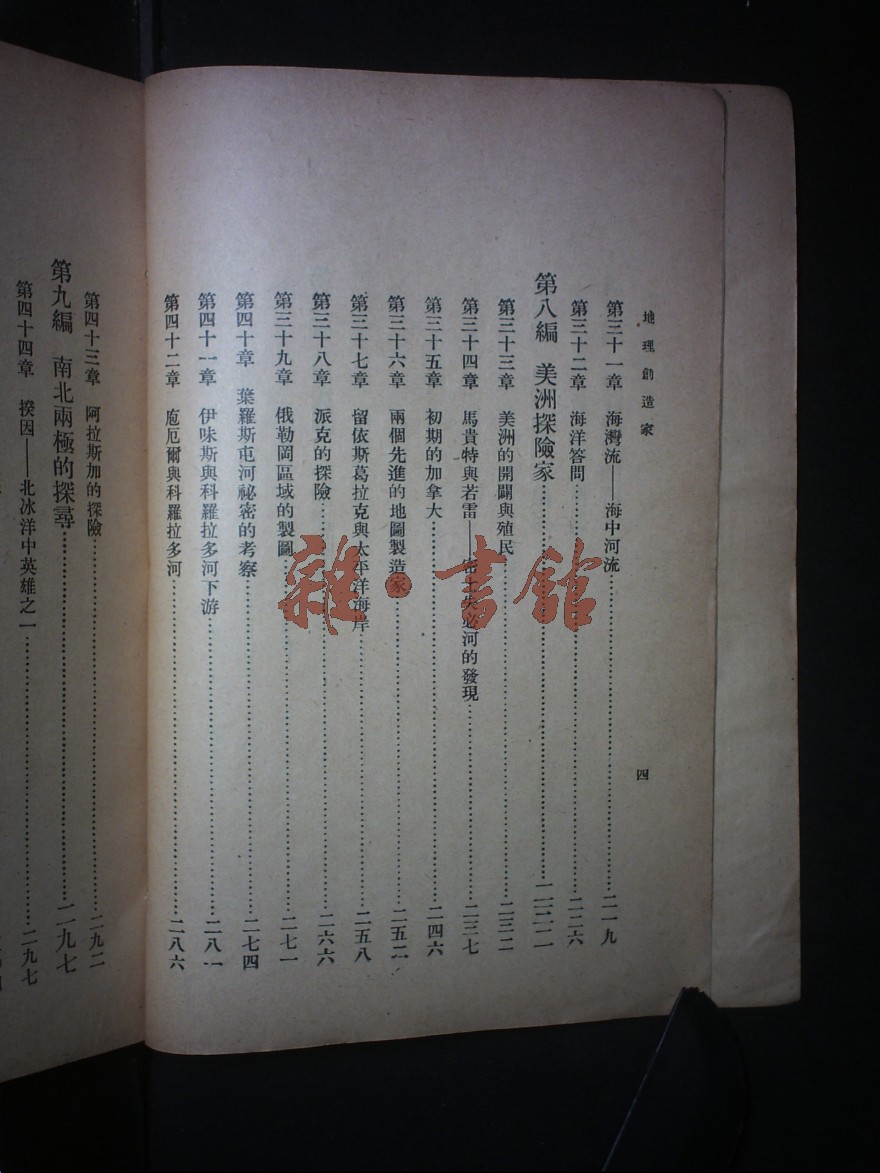 地理創造家
四
第三十一章 海灣流——海中河流……二一九
第三十二章 海洋答問……二二六
第八編 美洲探險家……二三二
第三十三章 美洲的開闢與殖民……二三二
第三十四章 馬貴特與若雷——密士失必河的發現……二三七
第三十五章 初期的加拿大……二四六
第三十六章 兩個先進的地圖製造家……二五二
第三十七章 留依斯葛拉克與太平洋海岸……二五八
第三十八章 派克的探險……二六六
第三十九章 俄勒岡區域的製圖……二七一
第四十章 葉羅斯屯河祕密的考察……二七四
第四十一章 伊味斯與科羅拉多河下游……二八一
第四十二章 庖厄爾與科羅拉多河……二八六
第四十三章 阿拉斯加的探險……二九二
第九編 南北兩極的探尋……二九七
第四十四章 揆因——北冰洋中英雄之一……二九七
雜·書館